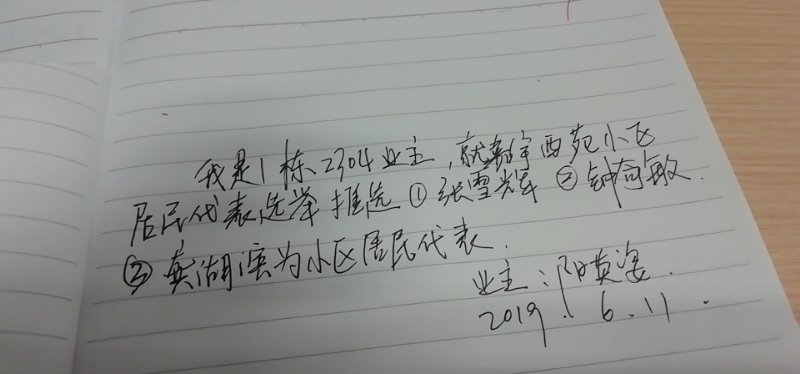 我是1栋2304业主,就宇西苑小区
居民代表选举推选①张雪辉②钟奇敏.
③龚湖滨为小区居民代表.
业主:阳黄姿.
2019.6.11.